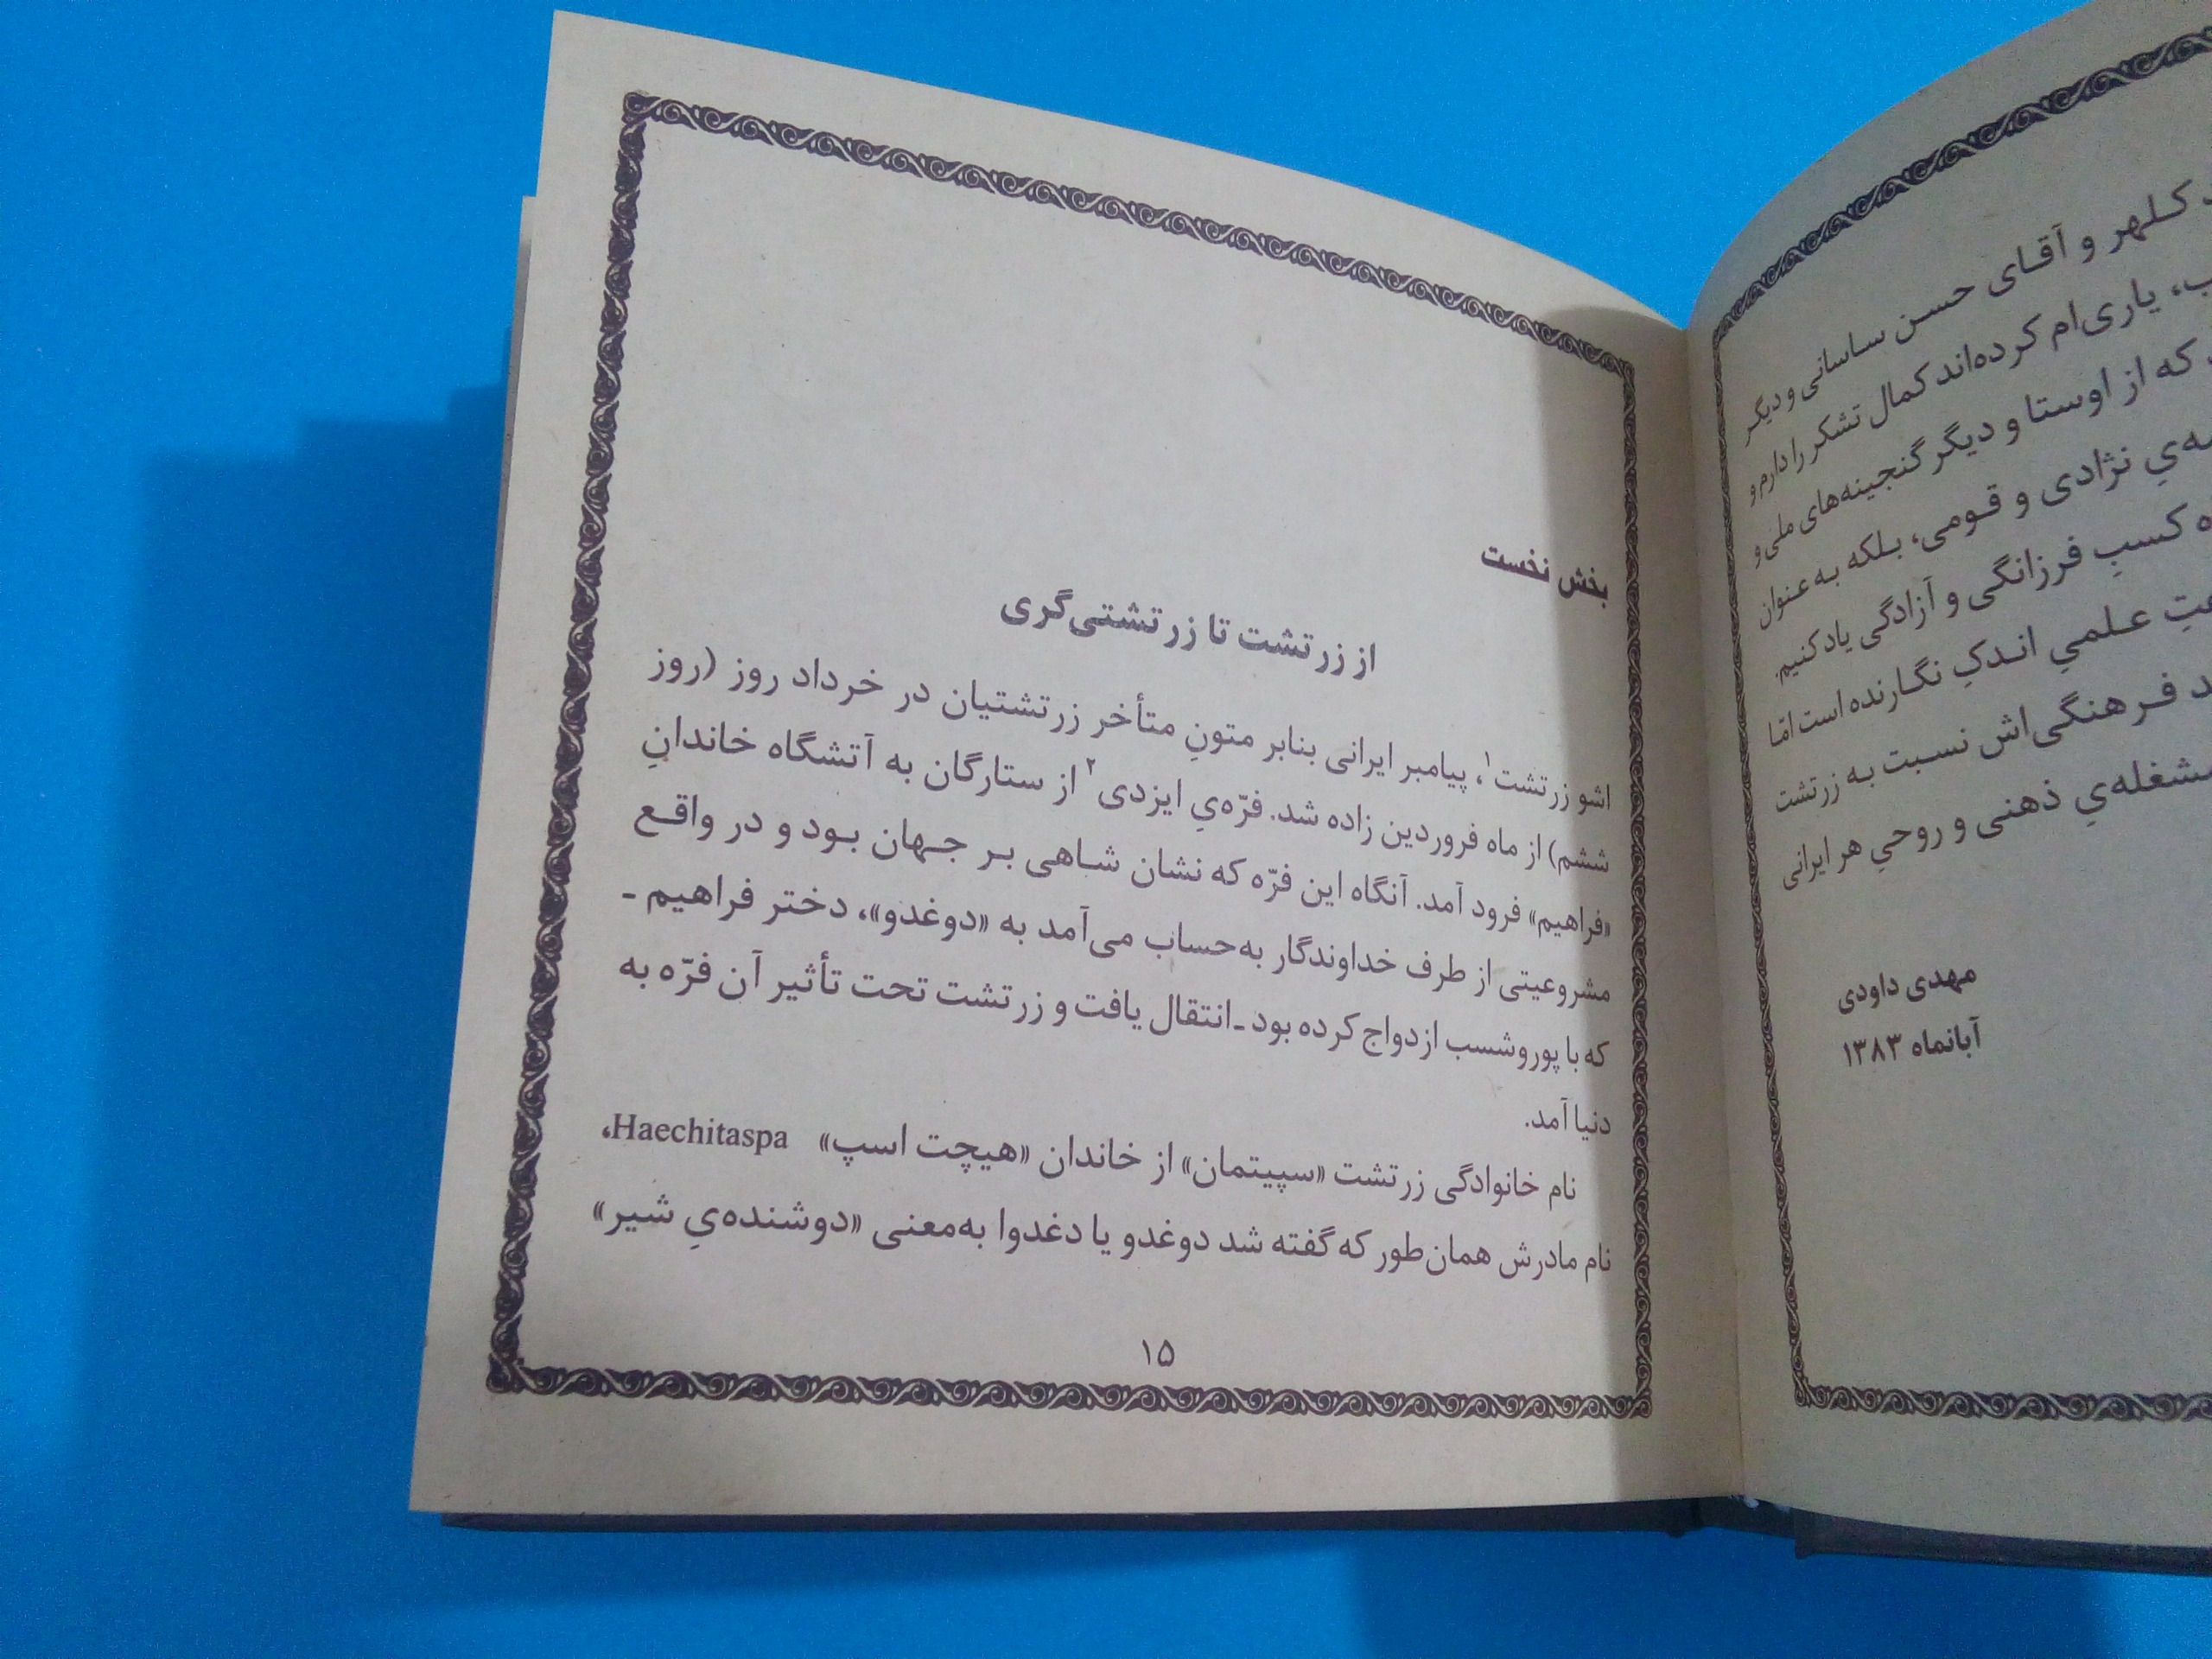 کلهر و آقای حسن ساسانی و دیگر
یاری‌ام کرده‌اند کمال تشکر را دارم و
که از اوستا و دیگر گنجینه‌های ملی و
نژادی و قومی، بلکه به عنوان
کسبِ فرزانگی و آزادگی یاد کنیم.
علمیِ اندکِ نگارنده است امّا
فرهنگی‌اش نسبت به زرتشت
ذهنی و روحیِ هر ایرانی
مهدی داودی
آبانماه ۱۳۸۳
بخش نخست
از زرتشت تا زرتشتی‌گری
اشو زرتشت۱، پیامبر ایرانی بنابر متونِ متأخر زرتشتیان در خرداد روز (روز
ششم) از ماه فروردین زاده شد. فرّه‌یِ ایزدی۲ از ستارگان به آتشگاه خاندانِ
«فراهیم» فرود آمد. آنگاه این فرّه که نشان شاهی بر جهان بود و در واقع
مشروعیتی از طرف خداوندگار به‌حساب می‌آمد به «دوغدو»، دختر فراهیم -
که با پوروشسب ازدواج کرده بود - انتقال یافت و زرتشت تحت تأثیر آن فرّه به
دنیا آمد.
نام خانوادگی زرتشت «سپیتمان» از خاندان «هیچت اسپ» Haechitaspa،
نام مادرش همان‌طور که گفته شد دوغدو یا دغدوا به‌معنی «دوشنده‌یِ شیر»
۱۵